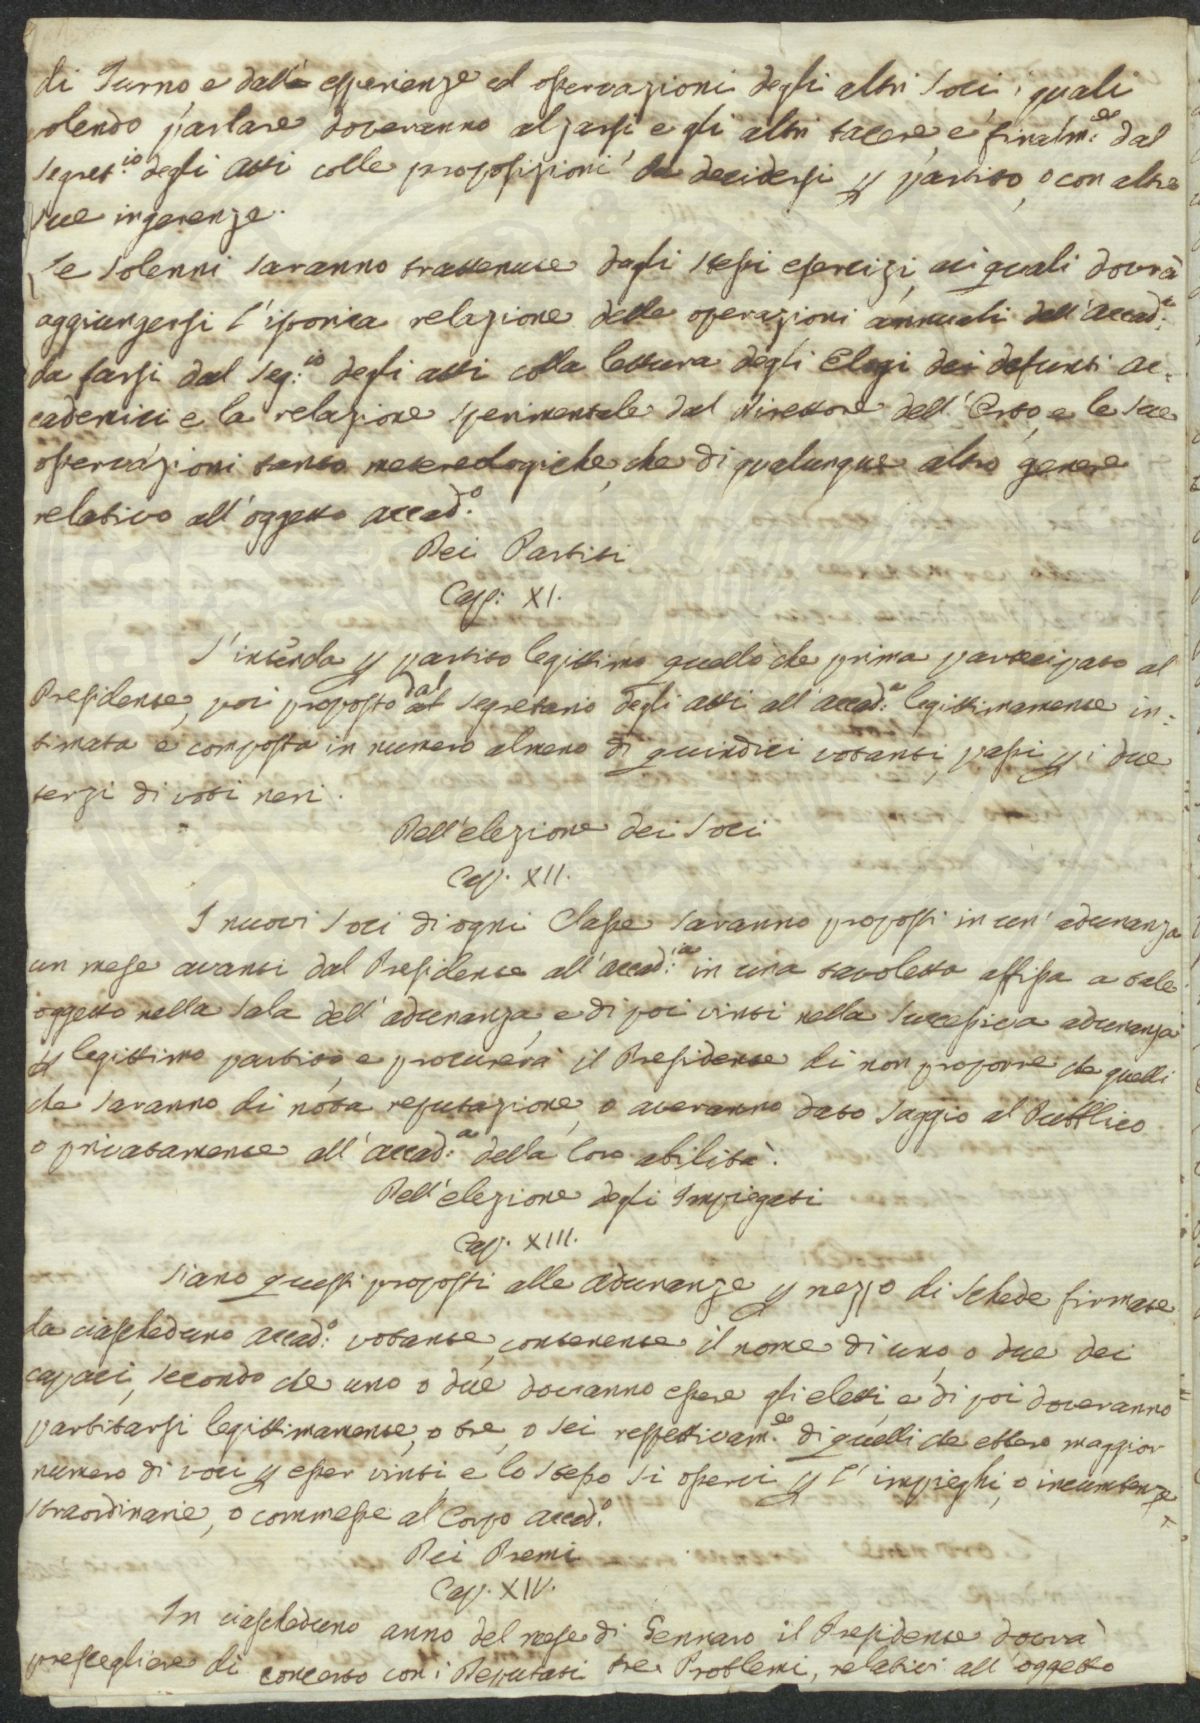 di Turno e dall'esperienze ed osservazioni degli altri Soci, i quali
volendo parlare doveranno alzarsi, e gli altri tacere, e finalm.e dal
Segret.io degli Atti colle proposizioni da decidersi p partito, o con altre
sue ingerenze.
Le Solenni saranno trattenute dagli stessi esercizi, ai quali dovrà
aggiungersi l'istorica relazione delle operazioni annuali dell'Accad.a
da farsi dal Seg.io degli atti colla lettura degli Elogi dei defunti Ac=
cademici e la relazione sperimentale dal Direttore dell'Orto, e le sue
osservazioni tanto metereologiche, che di qualunque altro genere
relativo all'oggetto accad.o
Dei Partiti
Cap: XI.
S'intenda p partito legittimo quello che prima partecipato al
Presidente, poi proposto dal Segretario degli atti all'accad.a legittimamente in=
timata e composta in numero almeno di quindici votanti, passi p i due
terzi di voti neri.
Dell'elezione dei Soci
Cap. XII.
I nuovi Soci di ogni Classe saranno proposti in un'adunanza
un mese avanti dal Presidente all'accad.ia in una tavoletta affissa a tale
oggetto nella Sala dell'adunanza, e di poi vinti nella Successiva adunanza
p legittimo partito, e procurerà il Presidente di non proporre che quelli
che saranno di nota reputazione, o averanno dato saggio al Pubblico
o privatamente all'accad.a della loro abilità.
Dell'elezione degli Impiegati
Cap. XIII.
Siano questi proposti alle adunanze p mezzo di Schede firmate
da ciascheduno accad.o votante, contenente il nome di uno, o due dei
capaci, secondo che uno o due dovranno essere gli eletti, e di poi doveranno
partitarsi legittimamente, o tre, o sei respettivam.e di quelli che ebbero maggior
numero di voci p esser vinti, e lo stesso si osservi p l'impieghi, o incumbenze
straordinarie, o commesse al Corpo accad.o
Dei Premi
Cap. XIV.
In ciascheduno anno del mese di Gennaro il Presidente dovrà
prescegliere di concerto con i Deputati tre Problemi, relativi all'oggetto